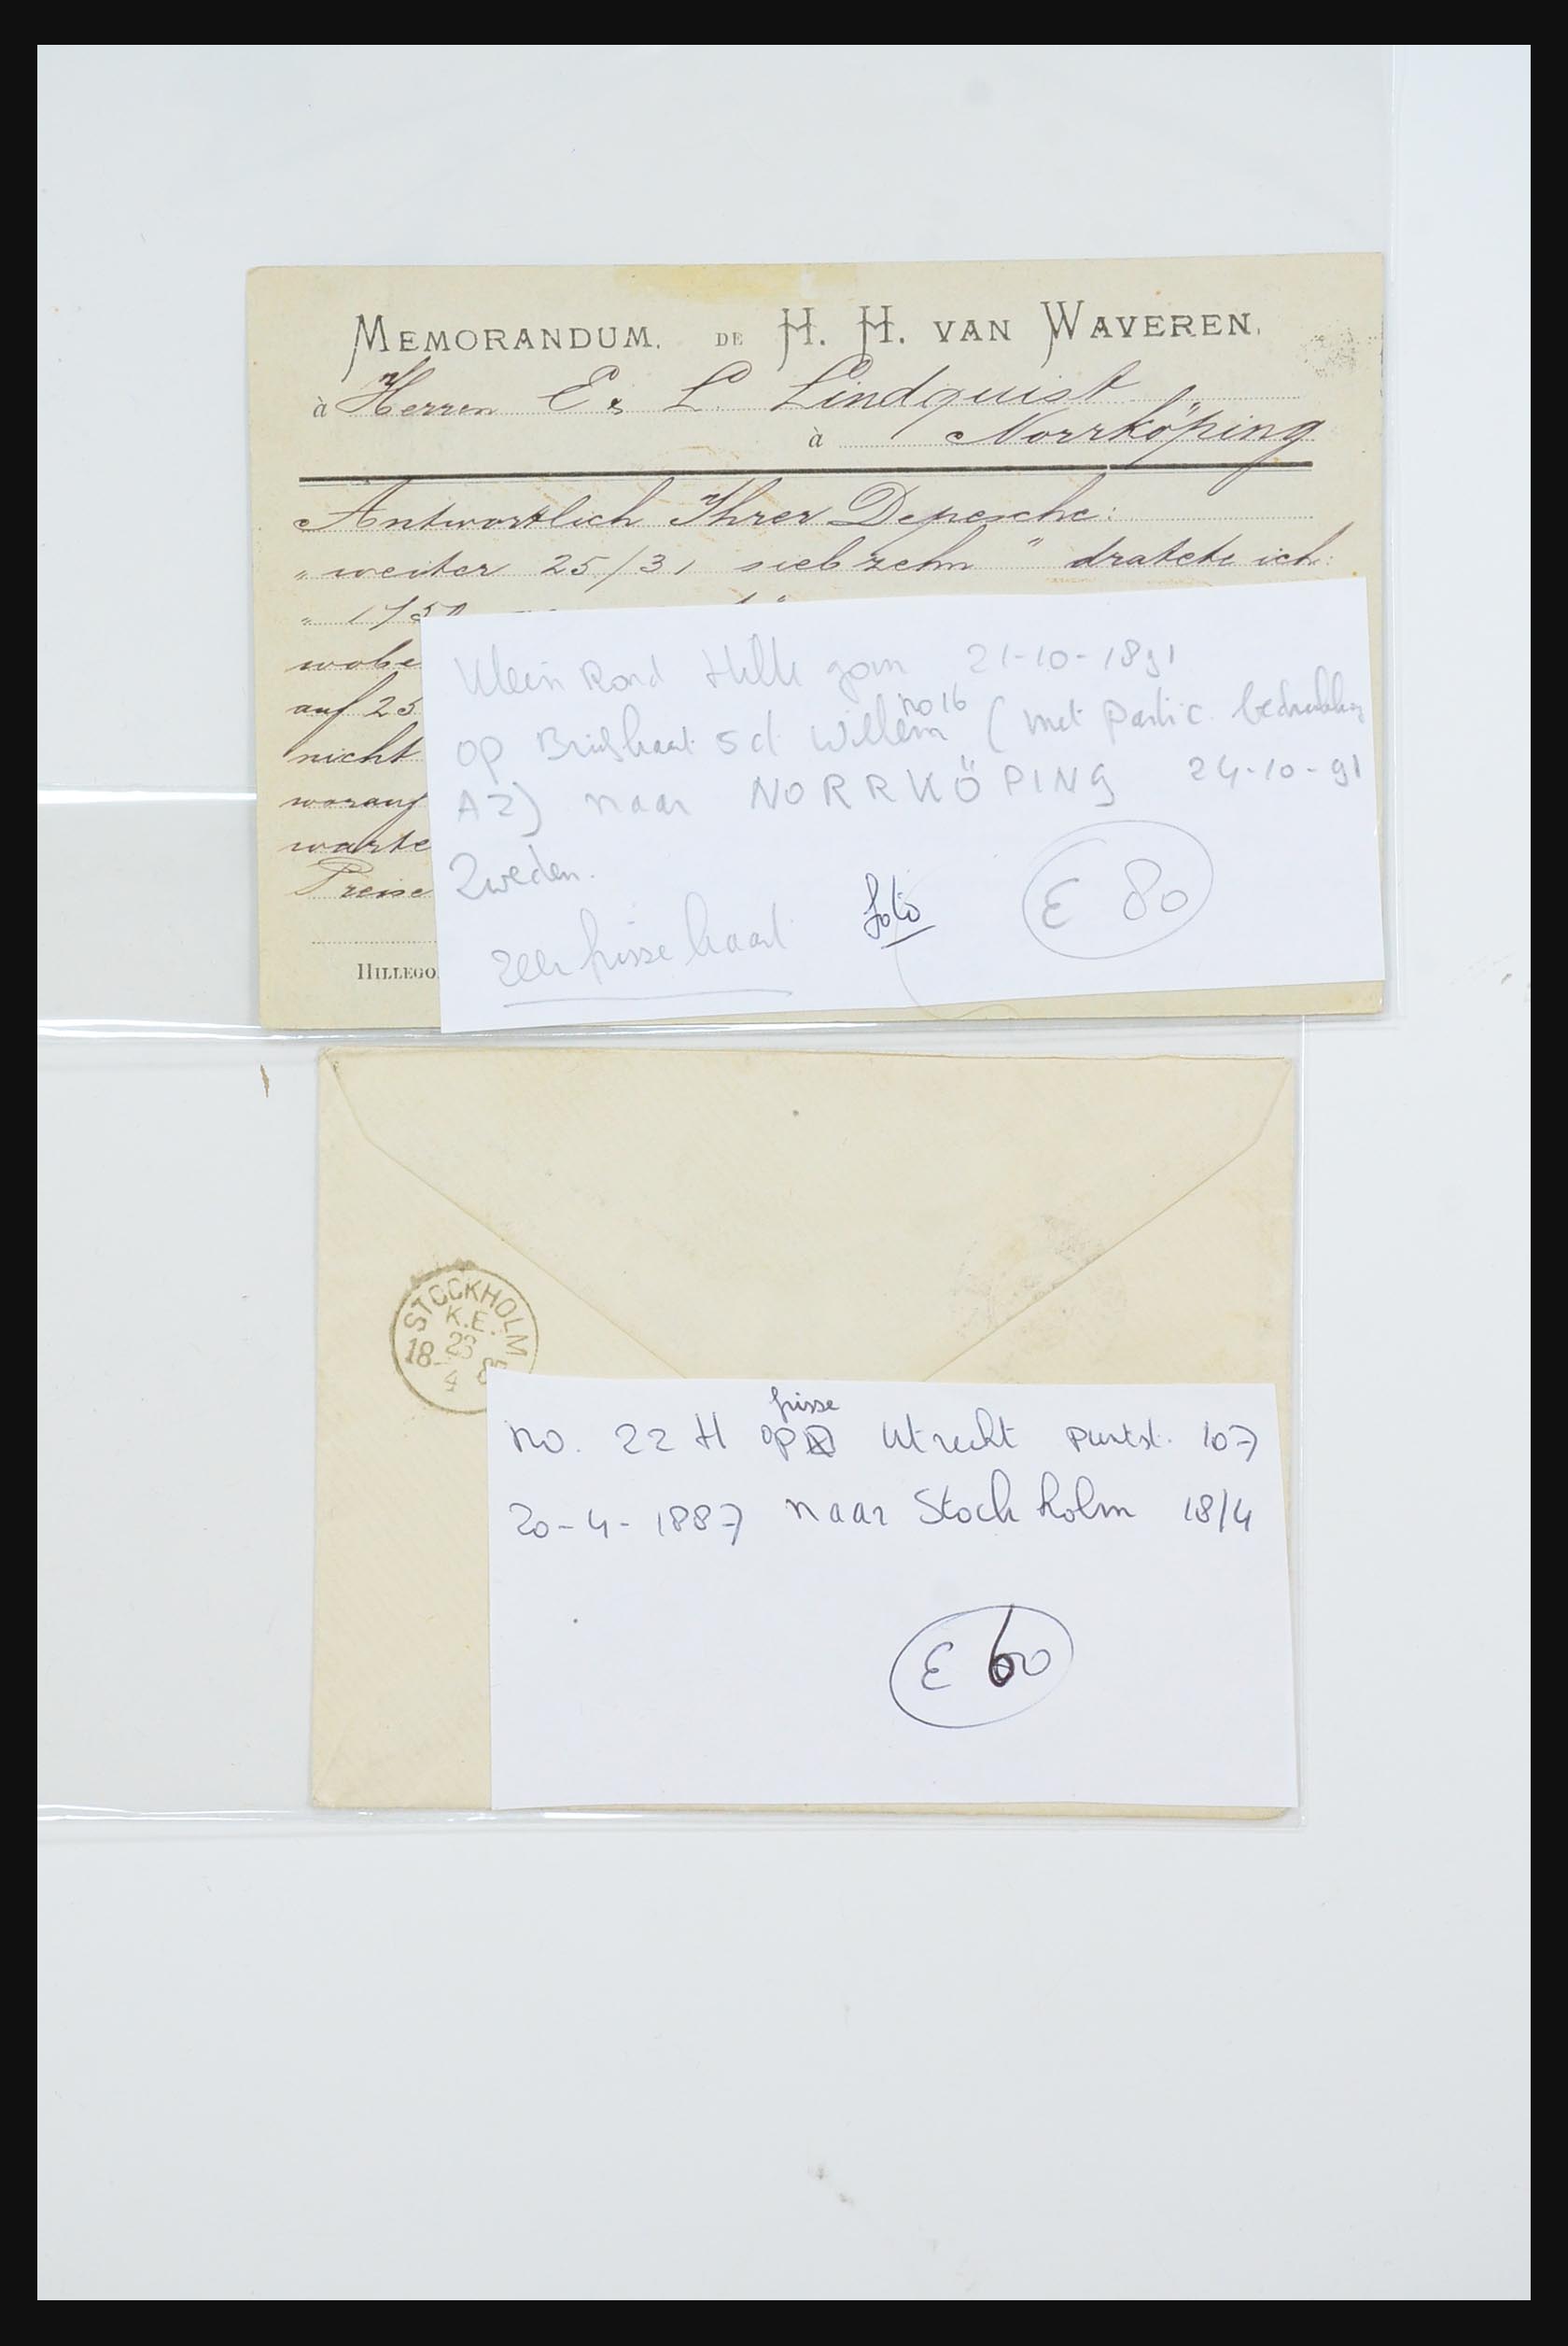 MEMORANDUM. DE H. H. VAN WAVEREN.
à Herren E. L. Lindquist
à Norrköping
Antwortlich Ihrer Depesche:
„ weiter 25/31 siebzehn " dratete ich
„ 1750
wobe
auf 25
nicht
worauf
warte
Preise
HILLEGO
Klein Rond Hillegom 21-10-1891
op Briefkaart 5 ct Willem no 16 (met partic. bedrukking
A2) naar NORRKÖPING 24-10-91
Zweden.
zeer frisse kaart foto € 80
STOCKHOLM
K.E.
18
4 8
no. 22 H op frisse Utrecht puntst. 107
20-4-1887 naar Stockholm 18/4
€ 60